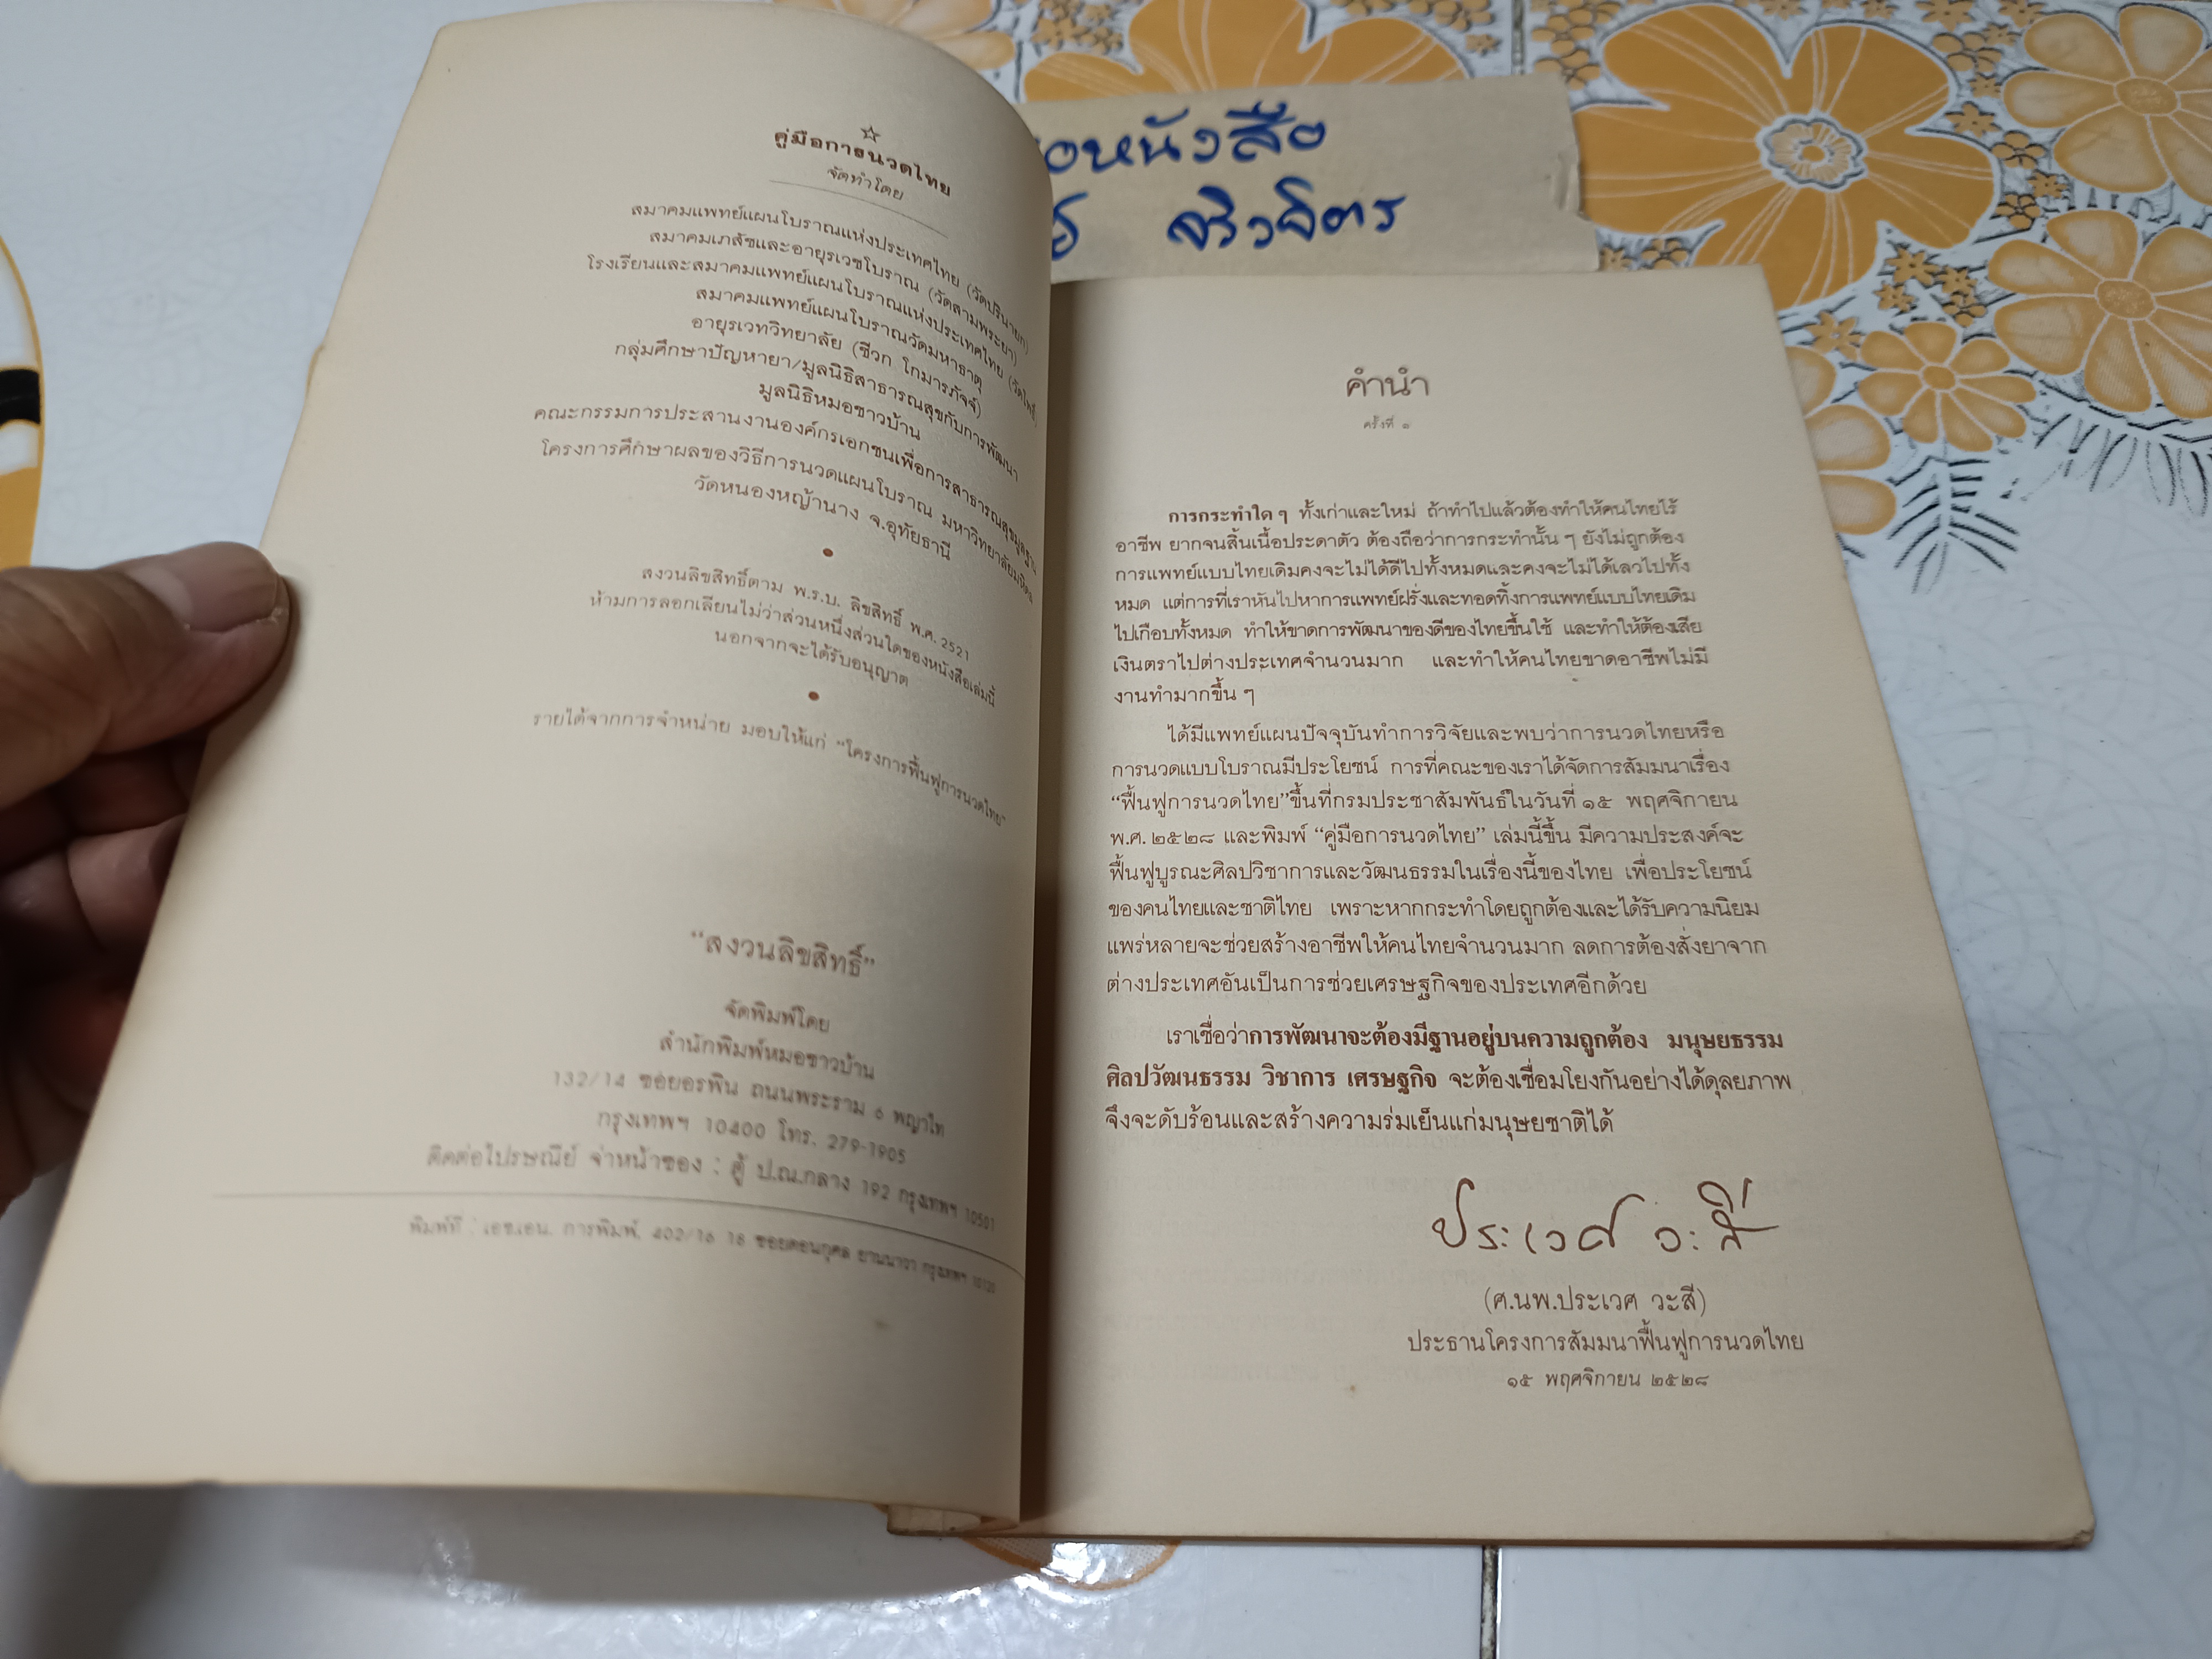 ☆
คู่มือการนวดไทย
จัดทำโดย
สมาคมแพทย์แผนโบราณแห่งประเทศไทย (วัดปรินายก)
สมาคมเภสัชและอายุรเวชโบราณ (วัดสามพระยา)
โรงเรียนและสมาคมแพทย์แผนโบราณแห่งประเทศไทย (วัดโพธิ์)
สมาคมแพทย์แผนโบราณวัดมหาธาตุ
อายุรเวทวิทยาลัย (ชีวก โกมารภัจจ์)
กลุ่มศึกษาปัญหายา/มูลนิธิสาธารณสุขกับการพัฒนา
มูลนิธิหมอชาวบ้าน
คณะกรรมการประสานงานองค์กรเอกชนเพื่อการสาธารณสุขมูลฐาน
โครงการศึกษาผลของวิธีการนวดแผนโบราณ มหาวิทยาลัยมหิดล
วัดหนองหญ้านาง จ.อุทัยธานี
สงวนลิขสิทธิ์ตาม พ.ร.บ. ลิขสิทธิ์ พ.ศ. 2521
ห้ามการลอกเลียนไม่ว่าส่วนหนึ่งส่วนใดของหนังสือเล่มนี้
นอกจากจะได้รับอนุญาต
รายได้จากการจำหน่าย มอบให้แก่ “โครงการฟื้นฟูการนวดไทย”
“สงวนลิขสิทธิ์”
จัดพิมพ์โดย
สำนักพิมพ์หมอชาวบ้าน
132/14 ซอยอรพิน ถนนพระราม 6 พญาไท
กรุงเทพฯ 10400 โทร. 279-1905
ติดต่อไปรษณีย์ จ่าหน้าซอง : ตู้ ป.ณ.กลาง 192 กรุงเทพฯ 10501
พิมพ์ที่ : เอช.เอน. การพิมพ์. 402/16 18 ซอยดอนกุศล ยานนาวา กรุงเทพฯ 10120
หนังสือ
จริวจิตร
คำนำ
ครั้งที่ ๑
การกระทำใด ๆ ทั้งเก่าและใหม่ ถ้าทำไปแล้วต้องทำให้คนไทยไร้
อาชีพ ยากจนสิ้นเนื้อประดาตัว ต้องถือว่าการกระทำนั้น ๆ ยังไม่ถูกต้อง
การแพทย์แบบไทยเดิมคงจะไม่ได้ดีไปทั้งหมดและคงจะไม่ได้เลวไปทั้ง
หมด แต่การที่เราหันไปหาการแพทย์ฝรั่งและทอดทิ้งการแพทย์แบบไทยเดิม
ไปเกือบทั้งหมด ทำให้ขาดการพัฒนาของดีของไทยขึ้นใช้ และทำให้ต้องเสีย
เงินตราไปต่างประเทศจำนวนมาก และทำให้คนไทยขาดอาชีพไม่มี
งานทำมากขึ้น ๆ
ได้มีแพทย์แผนปัจจุบันทำการวิจัยและพบว่าการนวดไทยหรือ
การนวดแบบโบราณมีประโยชน์ การที่คณะของเราได้จัดการสัมมนาเรื่อง
“ฟื้นฟูการนวดไทย”ขึ้นที่กรมประชาสัมพันธ์ในวันที่ ๑๕ พฤศจิกายน
พ.ศ. ๒๕๒๘ และพิมพ์ “คู่มือการนวดไทย” เล่มนี้ขึ้น มีความประสงค์จะ
ฟื้นฟูบูรณะศิลปวิชาการและวัฒนธรรมในเรื่องนี้ของไทย เพื่อประโยชน์
ของคนไทยและชาติไทย เพราะหากกระทำโดยถูกต้องและได้รับความนิยม
แพร่หลายจะช่วยสร้างอาชีพให้คนไทยจำนวนมาก ลดการต้องสั่งยาจาก
ต่างประเทศอันเป็นการช่วยเศรษฐกิจของประเทศอีกด้วย
เราเชื่อว่าการพัฒนาจะต้องมีฐานอยู่บนความถูกต้อง มนุษยธรรม
ศิลปวัฒนธรรม วิชาการ เศรษฐกิจ จะต้องเชื่อมโยงกันอย่างได้ดุลยภาพ
จึงจะดับร้อนและสร้างความร่มเย็นแก่มนุษยชาติได้
ประเวศ วะสี
(ศ.นพ.ประเวศ วะสี)
ประธานโครงการสัมมนาฟื้นฟูการนวดไทย
๑๕ พฤศจิกายน ๒๕๒๘